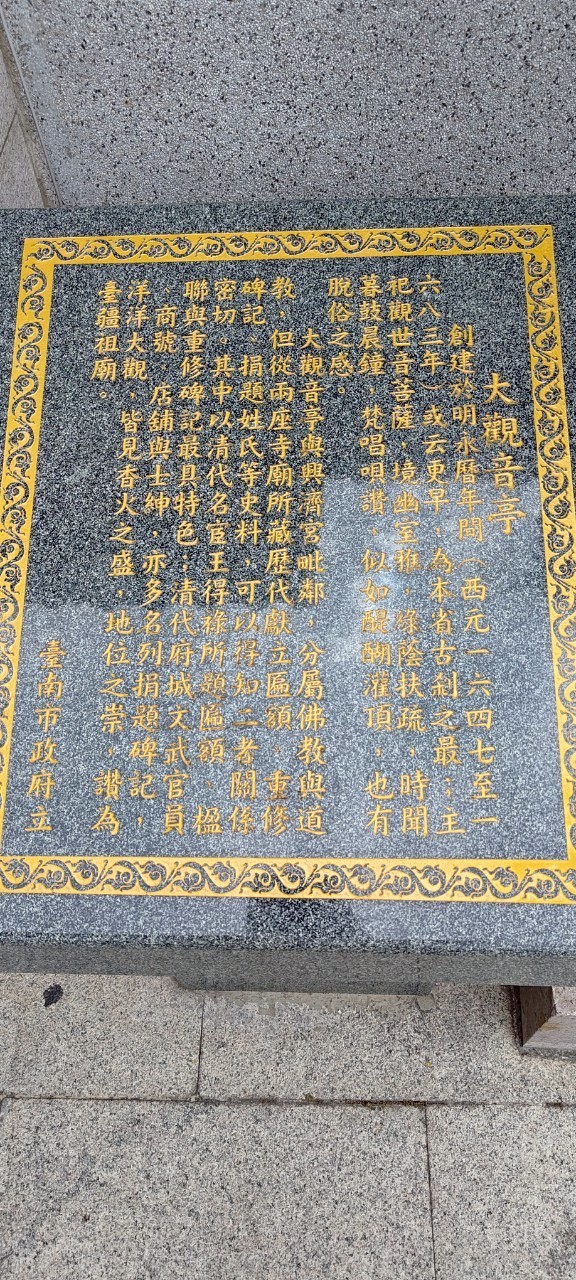 大觀音亭
創建於明永曆年間（西元一六四七至一
六八三年）或云更早，為本省古剎之最；主
祀觀世音菩薩，境幽室雅，綠蔭扶疏，時聞
暮鼓晨鐘，梵唱唄讚，似如醍醐灌頂，也有
脫俗之感。
大觀音亭與興濟宮毗鄰，分屬佛教與道
教，但從兩座寺廟所藏歷代獻立匾額、重修
碑記、捐題姓氏等史料，可以得知二者關係
密切。其中以清代名宦王得祿所題匾額、楹
聯與重修碑記最具特色；清代府城文武官員
、商號、店舖與士紳，亦多名列捐題碑記，
洋洋大觀，皆見香火之盛，地位之崇。讚為
臺疆祖廟。
臺南市政府立